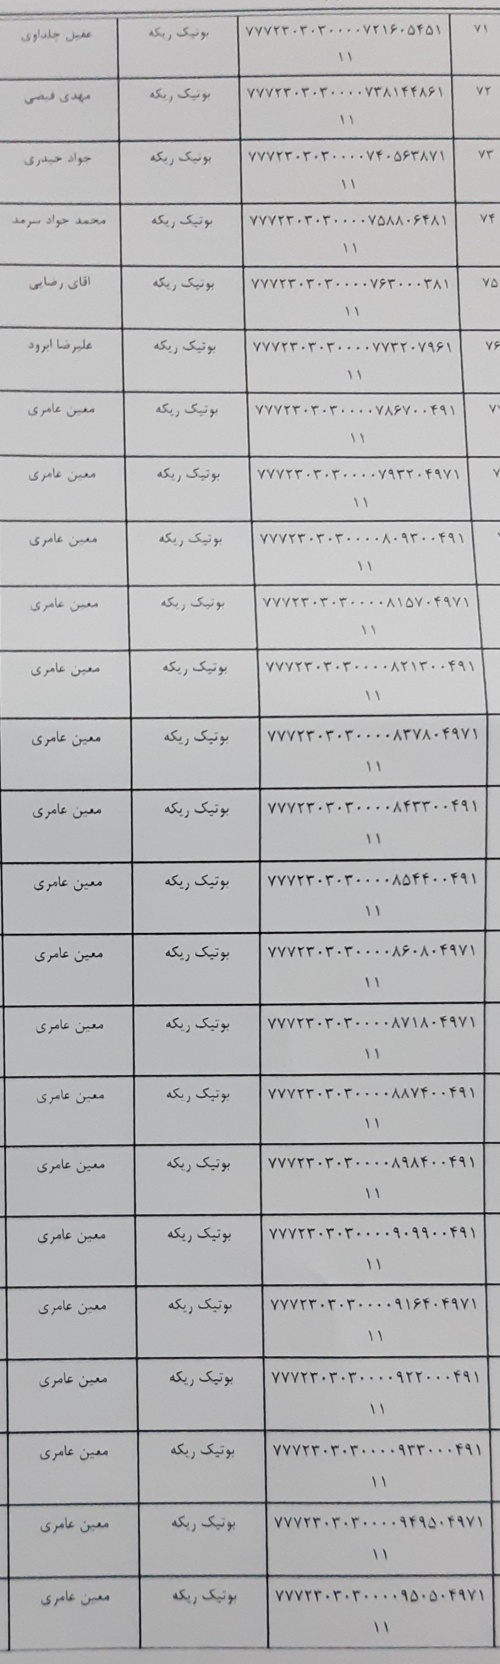 ۷۱ ۷۷۷۲۳۰۳۰۳۰۰۰۰۷۲۱۶۰۵۴۵۱ بوتیک ریکه عقیل جلداوی
۱۱
۷۲ ۷۷۷۲۳۰۳۰۳۰۰۰۰۷۳۸۱۴۴۸۶۱ بوتیک ریکه مهدی فیضی
۱۱
۷۳ ۷۷۷۲۳۰۳۰۳۰۰۰۰۷۴۰۵۶۳۸۷۱ بوتیک ریکه جواد حیدری
۱۱
۷۴ ۷۷۷۲۳۰۳۰۳۰۰۰۰۷۵۸۸۰۶۴۸۱ بوتیک ریکه محمد جواد سرمد
۱۱
۷۵ ۷۷۷۲۳۰۳۰۳۰۰۰۰۷۶۳۰۰۰۳۸۱ بوتیک ریکه اقای رضایی
۱۱
۷۶ ۷۷۷۲۳۰۳۰۳۰۰۰۰۷۷۳۲۰۷۹۶۱ بوتیک ریکه علیرضا ابرود
۱۱
۷۷۷۲۳۰۳۰۳۰۰۰۰۷۸۶۷۰۰۴۹۱ بوتیک ریکه معین عامری
۱۱
۷۷۷۲۳۰۳۰۳۰۰۰۰۷۹۳۲۰۴۹۷۱ بوتیک ریکه معین عامری
۱۱
۷۷۷۲۳۰۳۰۳۰۰۰۰۸۰۹۳۰۰۴۹۱ بوتیک ریکه معین عامری
۱۱
۷۷۷۲۳۰۳۰۳۰۰۰۰۸۱۵۷۰۴۹۷۱ بوتیک ریکه معین عامری
۱۱
۷۷۷۲۳۰۳۰۳۰۰۰۰۸۲۱۳۰۰۴۹۱ بوتیک ریکه معین عامری
۱۱
۷۷۷۲۳۰۳۰۳۰۰۰۰۸۳۷۸۰۴۹۷۱ بوتیک ریکه معین عامری
۱۱
۷۷۷۲۳۰۳۰۳۰۰۰۰۸۴۳۳۰۰۴۹۱ بوتیک ریکه معین عامری
۱۱
۷۷۷۲۳۰۳۰۳۰۰۰۰۸۵۴۴۰۰۴۹۱ بوتیک ریکه معین عامری
۱۱
۷۷۷۲۳۰۳۰۳۰۰۰۰۸۶۰۸۰۴۹۷۱ بوتیک ریکه معین عامری
۱۱
۷۷۷۲۳۰۳۰۳۰۰۰۰۸۷۱۸۰۴۹۷۱ بوتیک ریکه معین عامری
۱۱
۷۷۷۲۳۰۳۰۳۰۰۰۰۸۸۷۴۰۰۴۹۱ بوتیک ریکه معین عامری
۱۱
۷۷۷۲۳۰۳۰۳۰۰۰۰۸۹۸۴۰۰۴۹۱ بوتیک ریکه معین عامری
۱۱
۷۷۷۲۳۰۳۰۳۰۰۰۰۹۰۹۹۰۰۴۹۱ بوتیک ریکه معین عامری
۱۱
۷۷۷۲۳۰۳۰۳۰۰۰۰۹۱۶۴۰۴۹۷۱ بوتیک ریکه معین عامری
۱۱
۷۷۷۲۳۰۳۰۳۰۰۰۰۹۲۲۰۰۰۴۹۱ بوتیک ریکه معین عامری
۱۱
۷۷۷۲۳۰۳۰۳۰۰۰۰۹۳۳۰۰۰۴۹۱ بوتیک ریکه معین عامری
۱۱
۷۷۷۲۳۰۳۰۳۰۰۰۰۹۴۹۵۰۴۹۷۱ بوتیک ریکه معین عامری
۱۱
۷۷۷۲۳۰۳۰۳۰۰۰۰۹۵۰۵۰۴۹۷۱ بوتیک ریکه معین عامری
۱۱